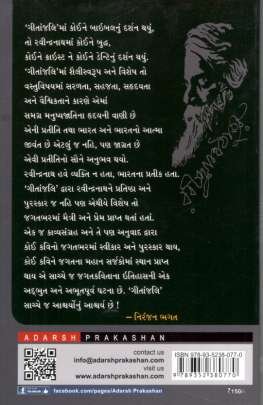 'ગીતાંજલિ'માં કોઈને બાઇબલનું દર્શન થયું,
તો રવીન્દ્રનાથમાં કોઈને બુદ્ધ,
કોઈને ક્રાઇસ્ટ ને કોઈને દૅન્ટિનું દર્શન થયું.
'ગીતાંજલિ'માં શૈલીસ્વરૂપ અને વિશેષ તો
વસ્તુવિષયમાં સરળતા, સહજતા, સહૃદયતા
અને વૈશ્વિકતાને કારણે એમાં
સમગ્ર મનુષ્યજાતિના હૃદયની વાણી છે
એની પ્રતીતિ તથા ભારત અને ભારતનો આત્મા
જીવંત છે એટલું જ નહિ, પણ જાગ્રત છે
એવી પ્રતીતિનો સૌને અનુભવ થયો.
રવીન્દ્રનાથ હવે વ્યક્તિ ન હતા, ભારતના પ્રતીક હતા.
'ગીતાંજલિ' દ્વારા રવીન્દ્રનાથને પ્રતિષ્ઠા અને
પુરસ્કાર જ નહિ પણ એથીયે વિશેષ તો
જગતભરમાં મૈત્રી અને પ્રેમ પ્રાપ્ત થતાં હતાં.
એક જ કાવ્યસંગ્રહ અને તે પણ અનુવાદ દ્વારા
કોઈ કવિનો જગતભરમાં સ્વીકાર અને પુરસ્કાર થાય,
કોઈ કવિને જગતના મહાન સર્જકોમાં સ્થાન પ્રાપ્ત
થાય એ સાચ્ચે જ જગતકવિતાના ઇતિહાસની એક
અદ્ભુત અને અભૂતપૂર્વ ઘટના છે. 'ગીતાંજલિ'
સાચ્ચે જ આશ્ચર્યોનું આશ્ચર્ય છે !
– નિરંજન ભગત
ADARSH PRAKASHAN
contact us
info@adarshprakashan.com
visit us
www.adarshprakashan.com
ISBN 978-93-5238-077-0
9 789352 380770
Join us
facebook.com/pages/Adarsh Prakashan
₹150/-